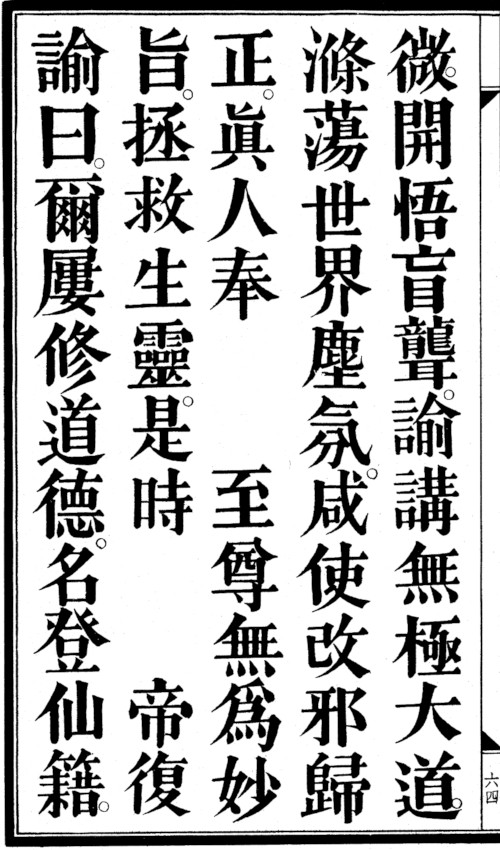 微。開悟盲聾。諭講無極大道。
滌蕩世界塵氛。咸使改邪歸
正。眞人奉　　至尊無爲妙
旨。拯救生靈。是時　　帝復
諭曰。爾屢修道德。名登仙籍。
六四